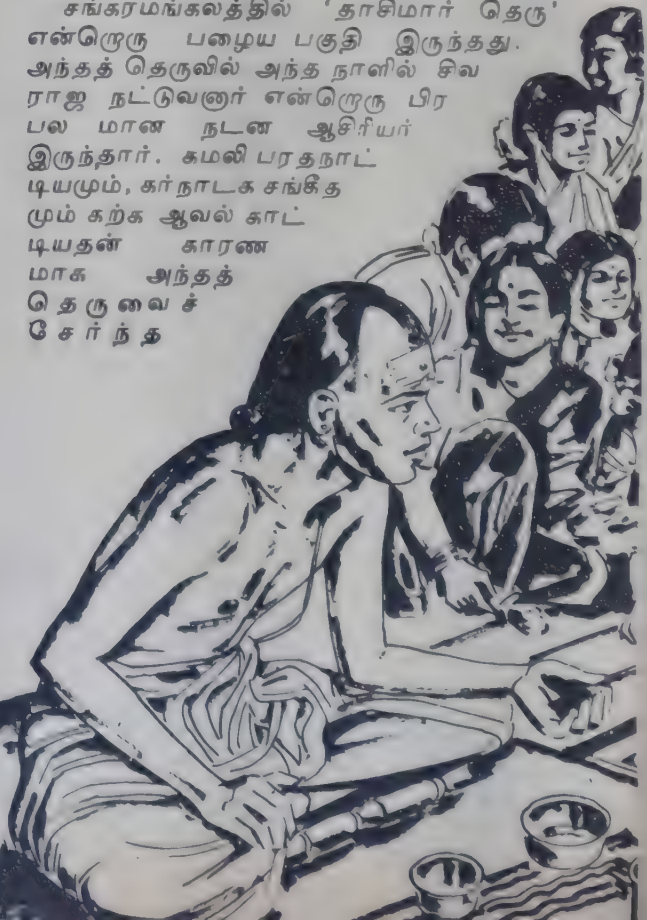 சங்கரமங்கலத்தில் 'தாசிமார் தெரு'
என்றொரு பழைய பகுதி இருந்தது.
அந்தத் தெருவில் அந்த நாளில் சிவ
ராஜ நட்டுவனார் என்றொரு பிர
பல மான நடன ஆசிரியர்
இருந்தார். கமலி பரதநாட்
டியமும், கர்நாடக சங்கீத
மும் கற்க ஆவல் காட்
டியதன் காரண
மாக அந்தத்
தெருவைச்
சேர்ந்த